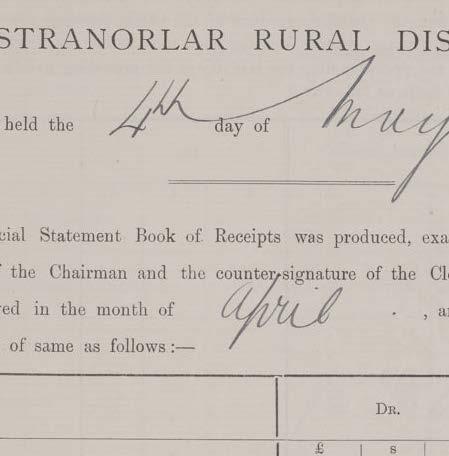 STRANORLAR RURAL DIS
held the 4th day of May
cial Statement Book of Receipts was produced, exa
f the Chairman and the counter-signature of the Cl
ed in the month of April . , a
of same as follows :—
DR.
£ s